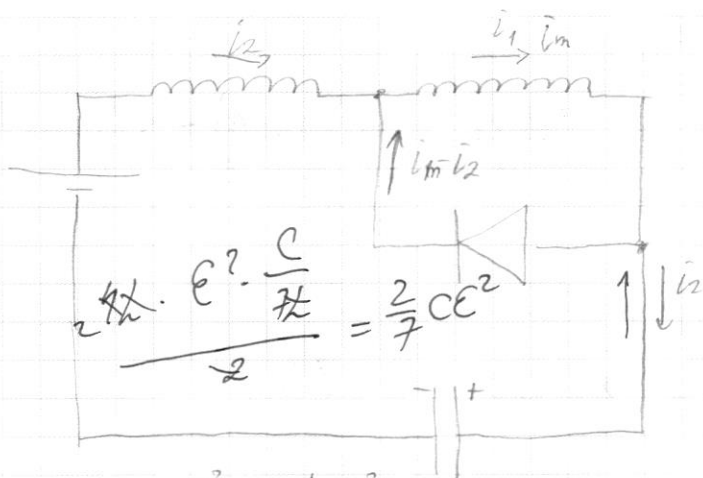 i₂
i₁ iₘ
iₘ-i₂
i₂
ε² · C/7L
/2 = 2/7 Cε²
- +